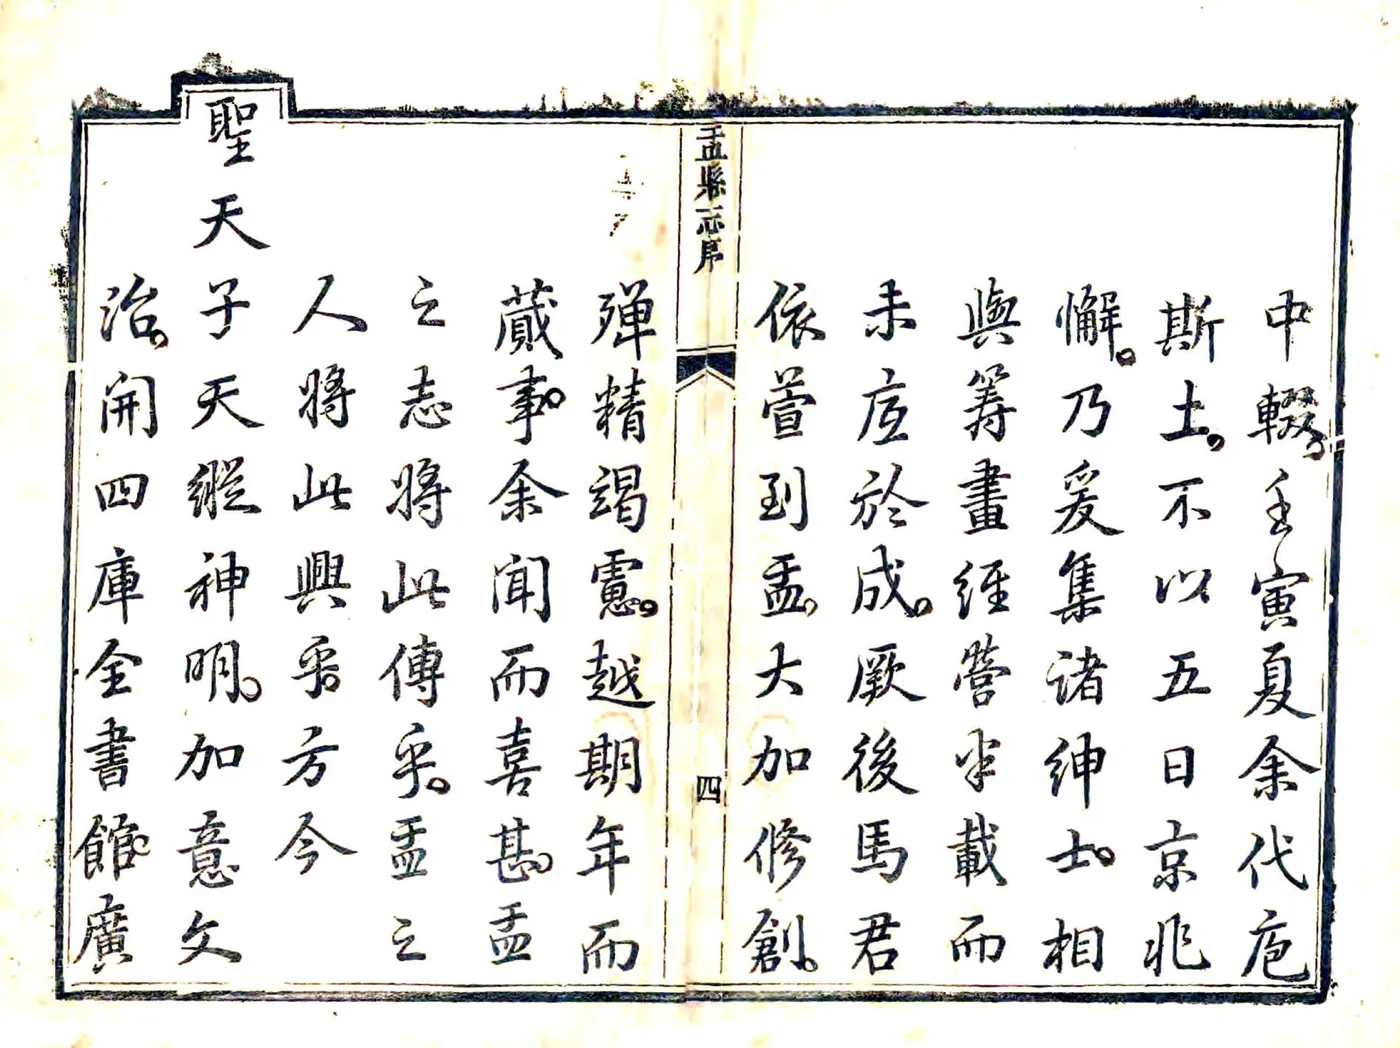 中輟壬寅夏余代庖
斯土不以五日京兆
懈乃爰集諸紳士相
與籌畫經營半載而
未底於成厥後馬君
依萱到盂大加修創
盂縣志序
四
殫精竭慮越期年而
蕆事余聞而喜甚盂
之志將此傳乎盂之
人將此興乎方今
聖天子天縱神明加意文
治開四庫全書館廣